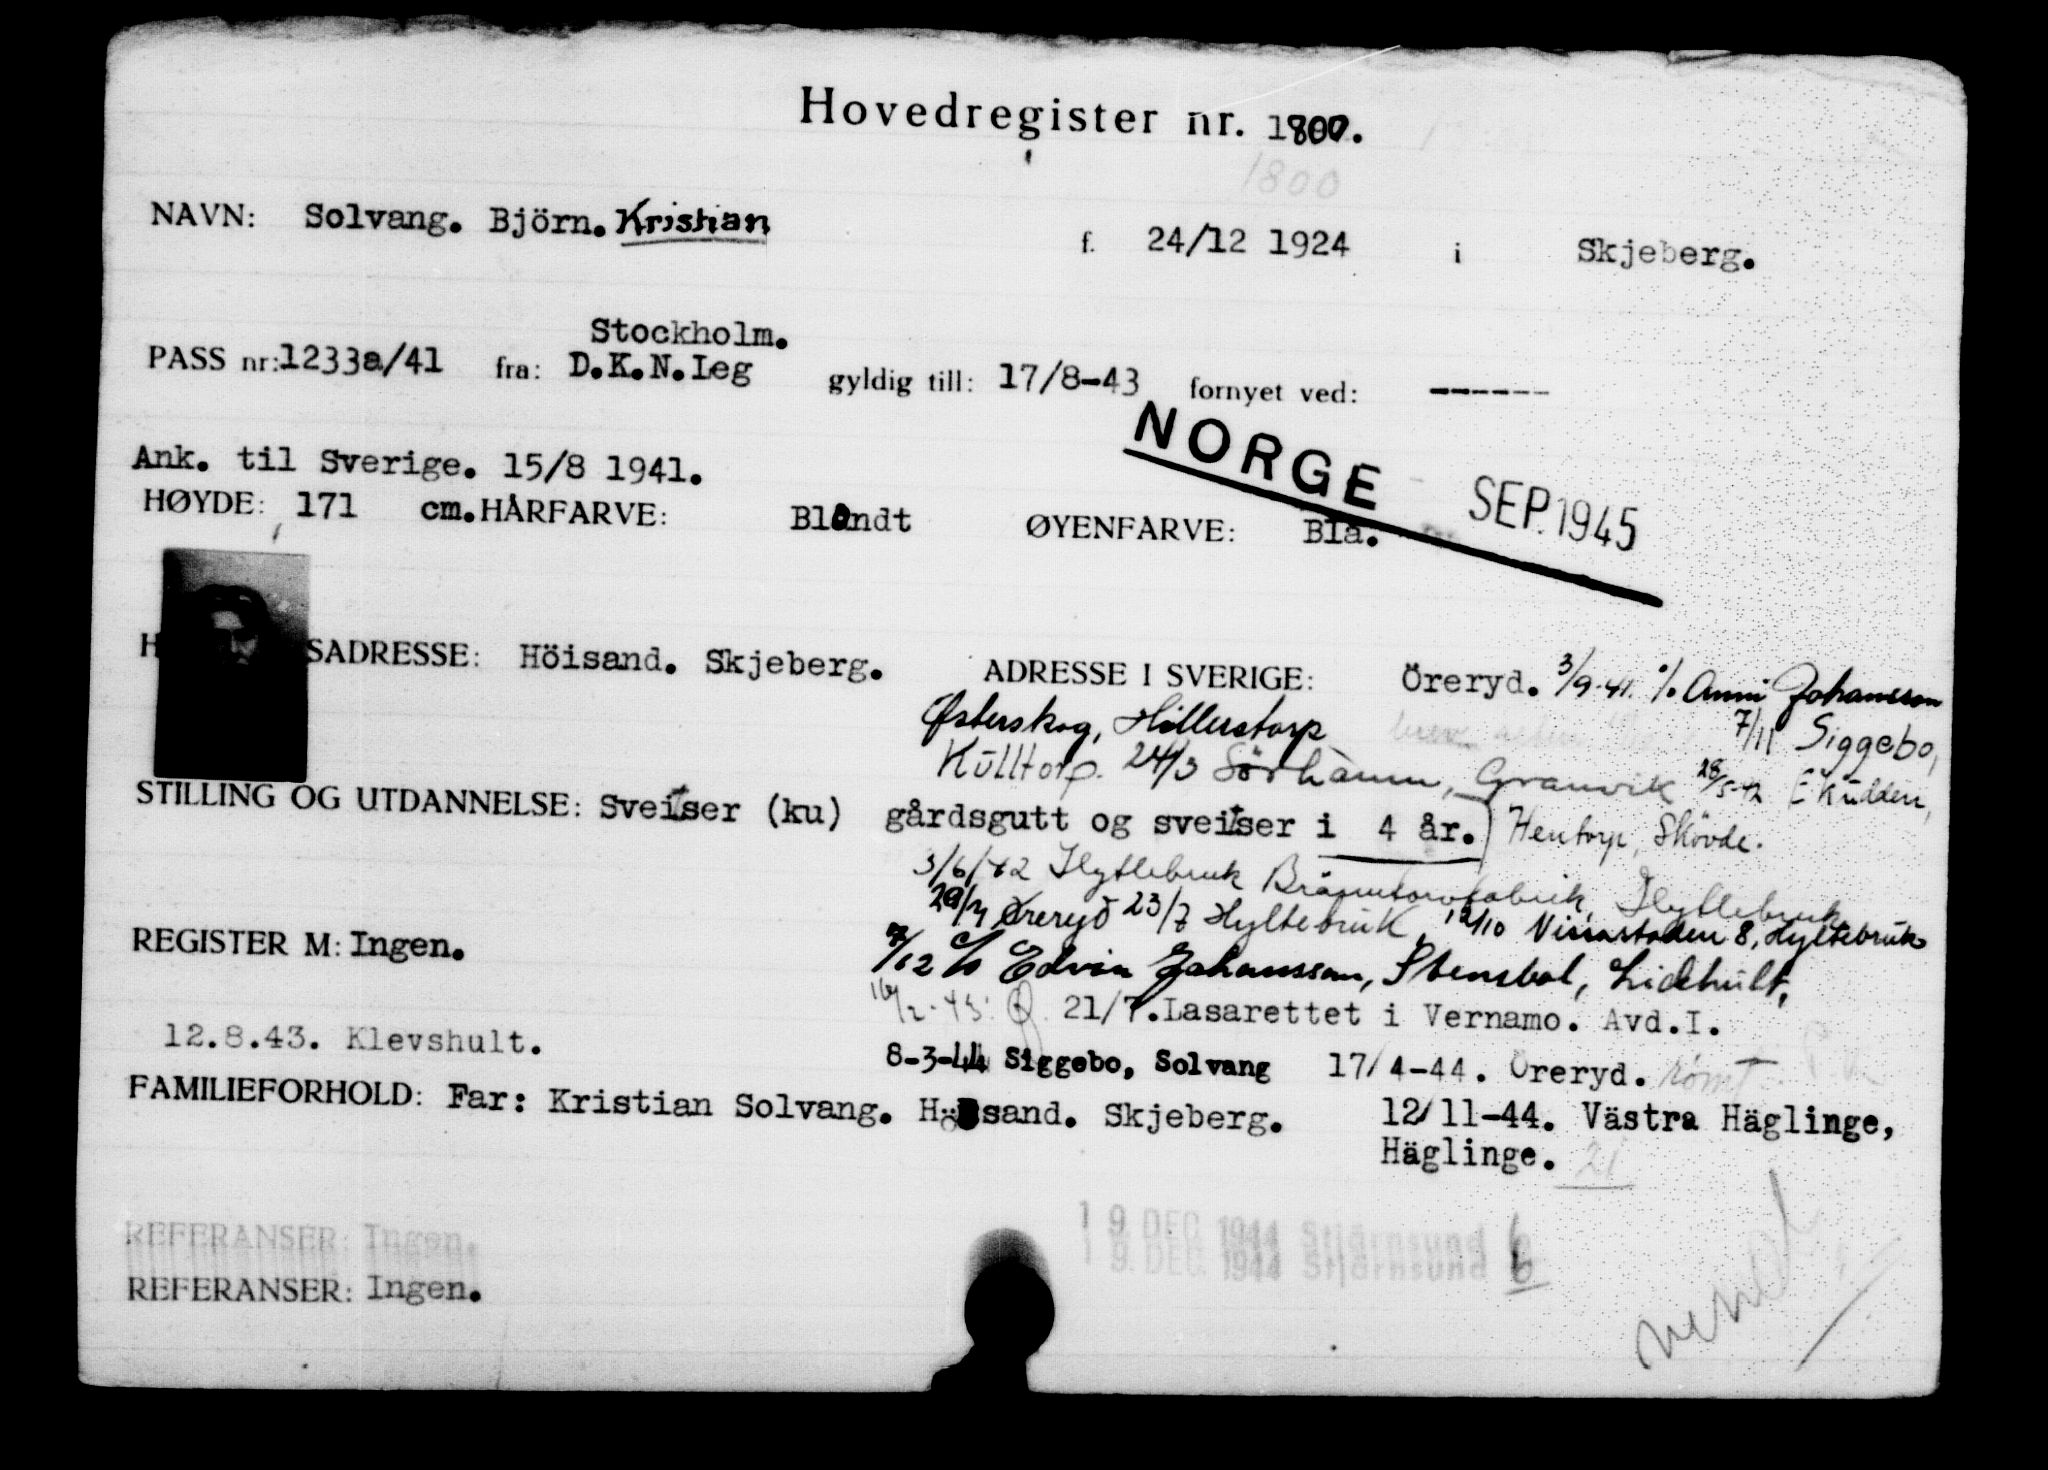 Hovedregister nr. 1800.
1800
NAVN: Solvang. Björn. Kristian f. 24/12 1924 i Skjeberg.
Stockholm.
PASS nr: 1233a/41 fra: D.K.N.Leg gyldig till: 17/8-43 fornyet ved: ------
NORGE SEP. 1945
Ank. til Sverige. 15/8 1941.
HØYDE: 171 cm. HÅRFARVE: Blondt ØYENFARVE: Blå.
H SADRESSE: Höisand. Skjeberg. ADRESSE I SVERIGE: Öreryd. 3/9-41. % Anni Johansson
Østerskog, Hillerstorp 7/11 Siggebo,
Kulltorp. 24/3 Sörhamn, Granvik 28/5-42 Ekudden,
STILLING OG UTDANNELSE: Sveitser (ku) gårdsgutt og sveitser i 4 år. Hentorp, Skövde.
3/6/42 Hyltebruk Bränntorvfabrik, Hyltebruk
Øreryd 23/7 Hyltebruk, 12/10 Nissastaden 8, Hyltebruk
REGISTER M: Ingen.
7/12 c/o Edvin Johansson, Stensbol, Lidhult,
21/7. Lasarettet i Vernamo. Avd.I.
12.8.43. Klevshult.
8-3-44 Siggebo, Solvang 17/4-44. Öreryd. rømt
FAMILIEFORHOLD: Far: Kristian Solvang. Höisand. Skjeberg. 12/11-44. Västra Häglinge,
Häglinge. 21
REFERANSER: Ingen.
19 DEC. 1944 Stjärnsund 6
19. DEC. 1944 Stjärnsund 6
REFERANSER: Ingen.
vend